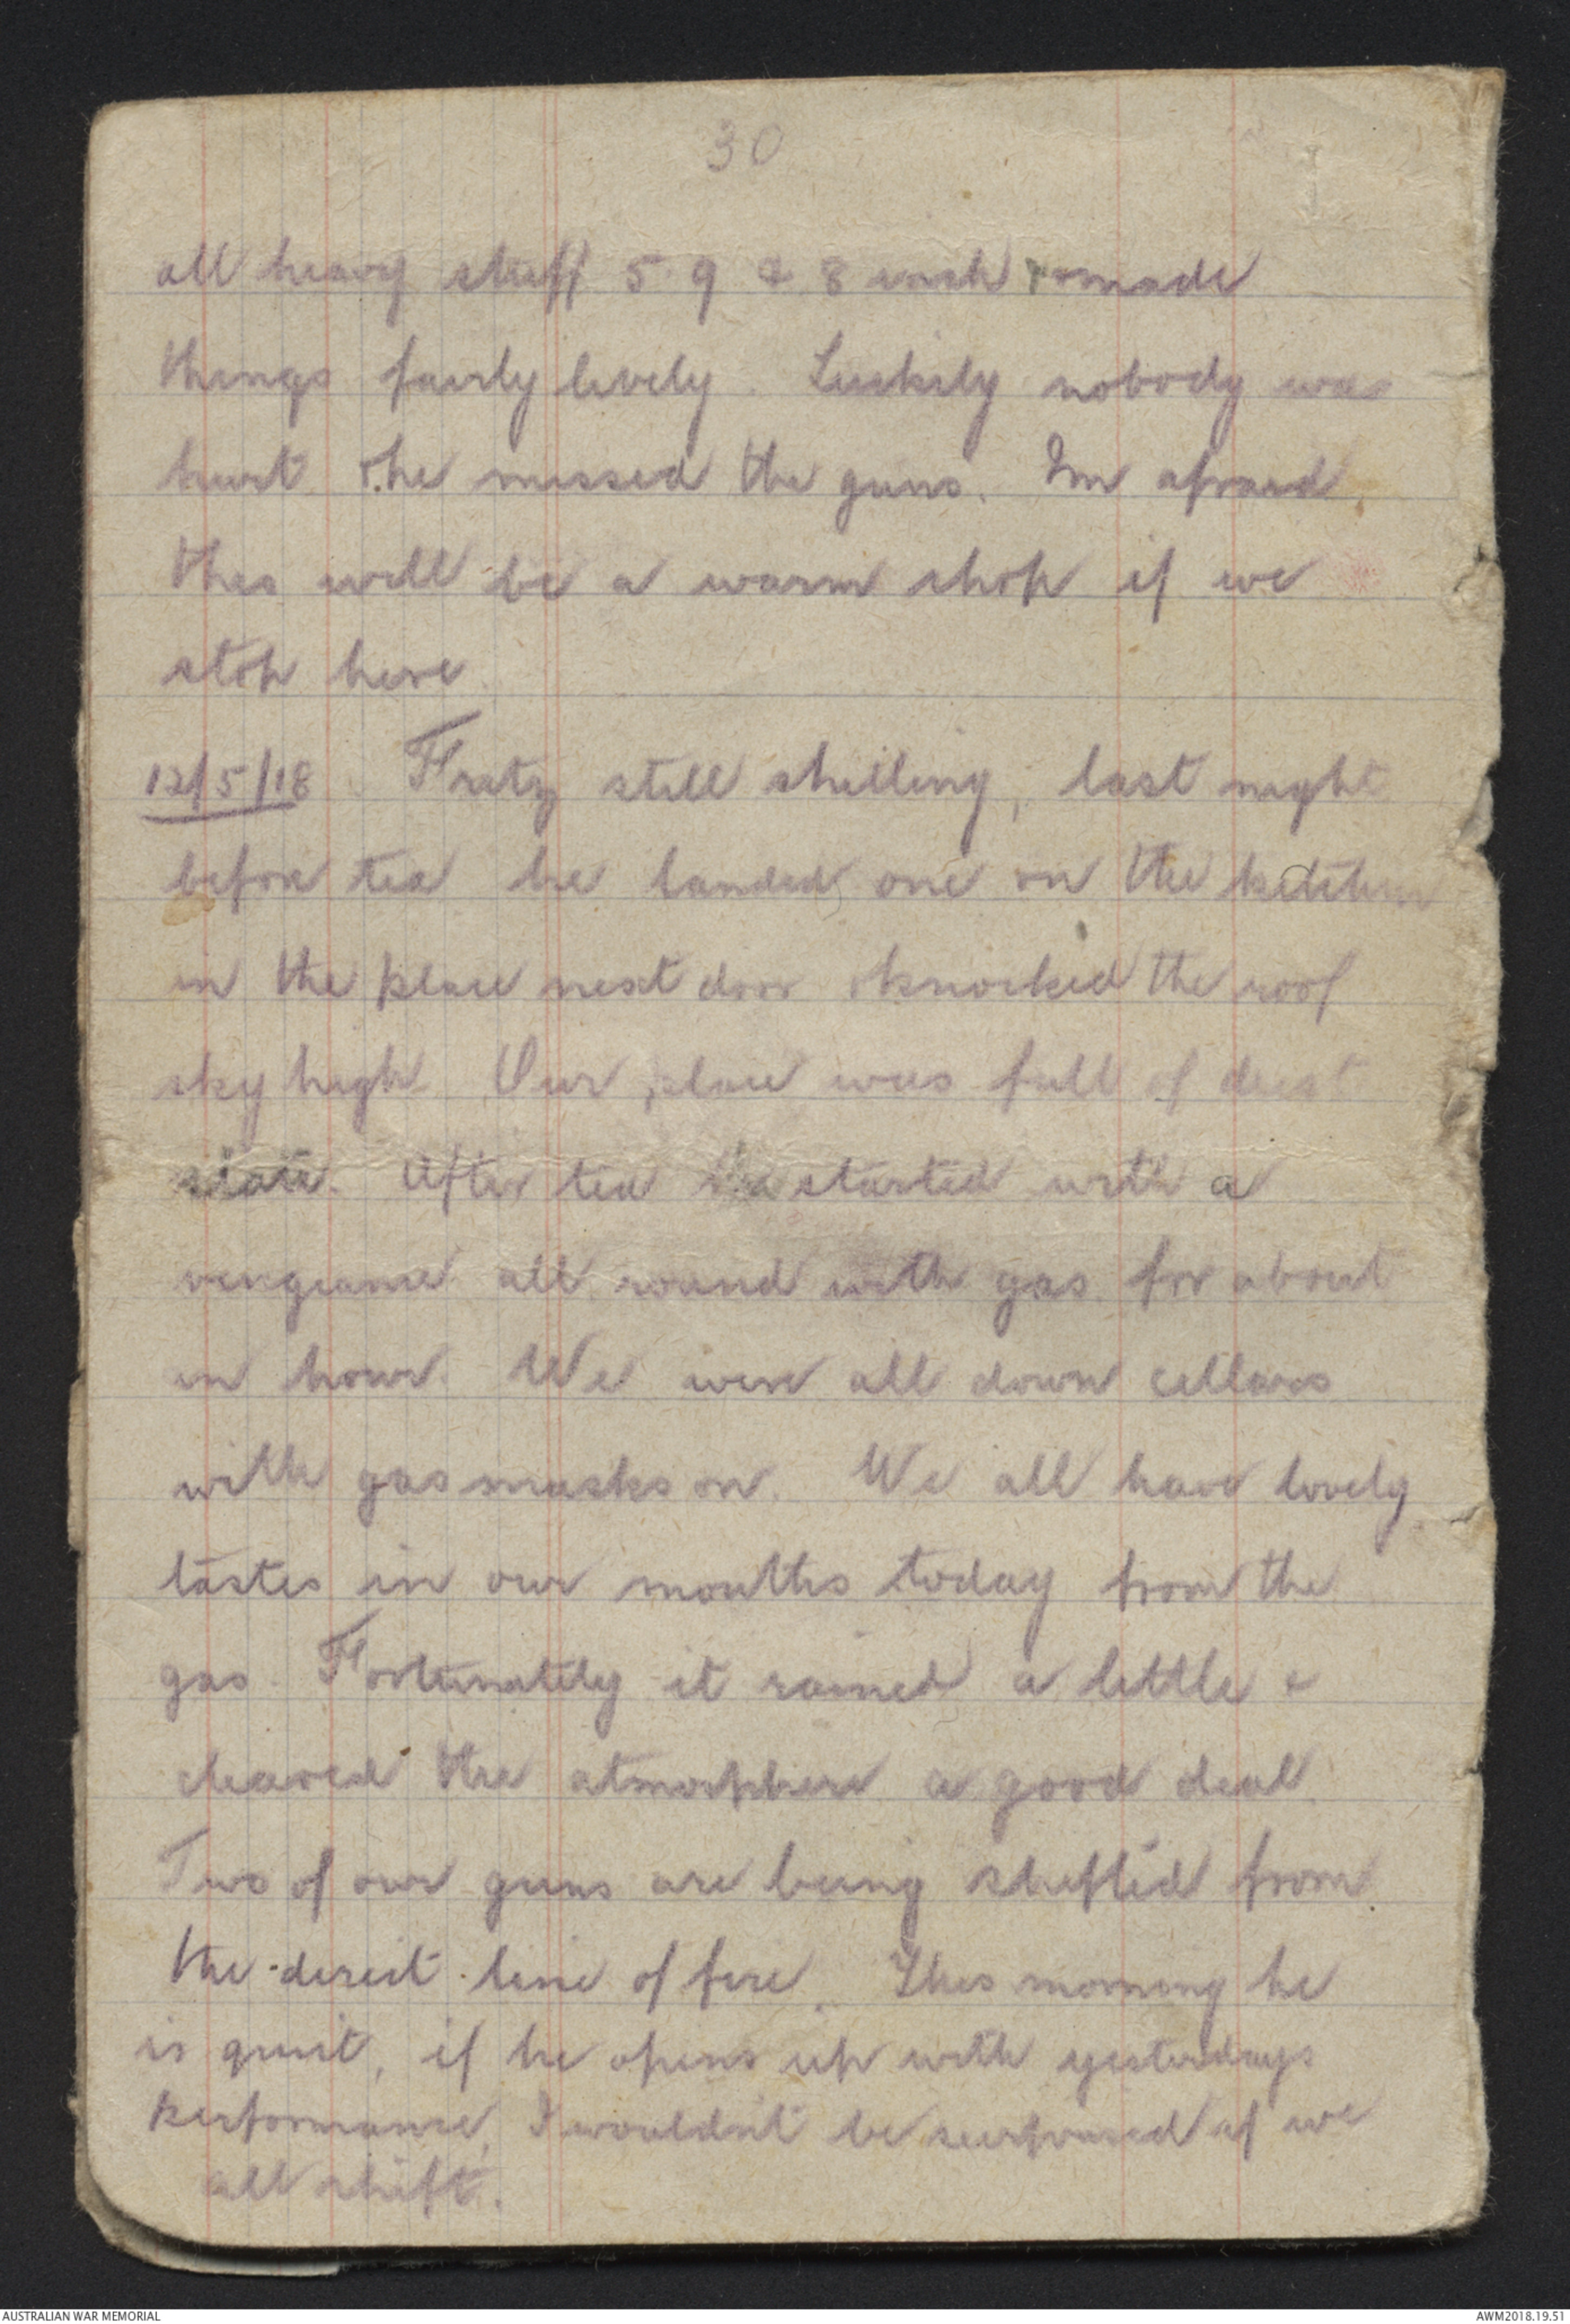 30
all heavy stuff 5.9 & 8 inch & made
things fairly lively. Luckily nobody was
hurt & he missed the guns. Im afraid
this will be a warm shop if we
stop here
12/5/18 Fritz still shelling, last night
before tea he landed one on the kitchen
in the place next door & knocked the roof
sky high. Our place was full of dust
After tea he started with a
vengeance all round with gas for about
an hour. We were all down cellars
with gas masks on. We all have lovely
tastes in our mouths today from the
gas. Fortunately it rained a little &
cleared the atmosphere a good deal.
Two of our guns are being shifted from
the direct line of fire. This morning he
is quiet, if he opens up with yesterdays
performance, I wouldn't be surprised if we
all shift.
AUSTRALIAN WAR MEMORIAL
AWM2018.19.51